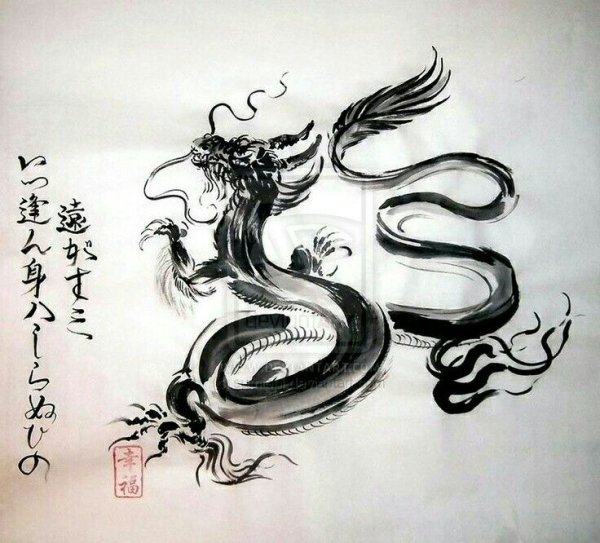 いつ逢ん身ハしらぬひの
遠がすミ
幸福